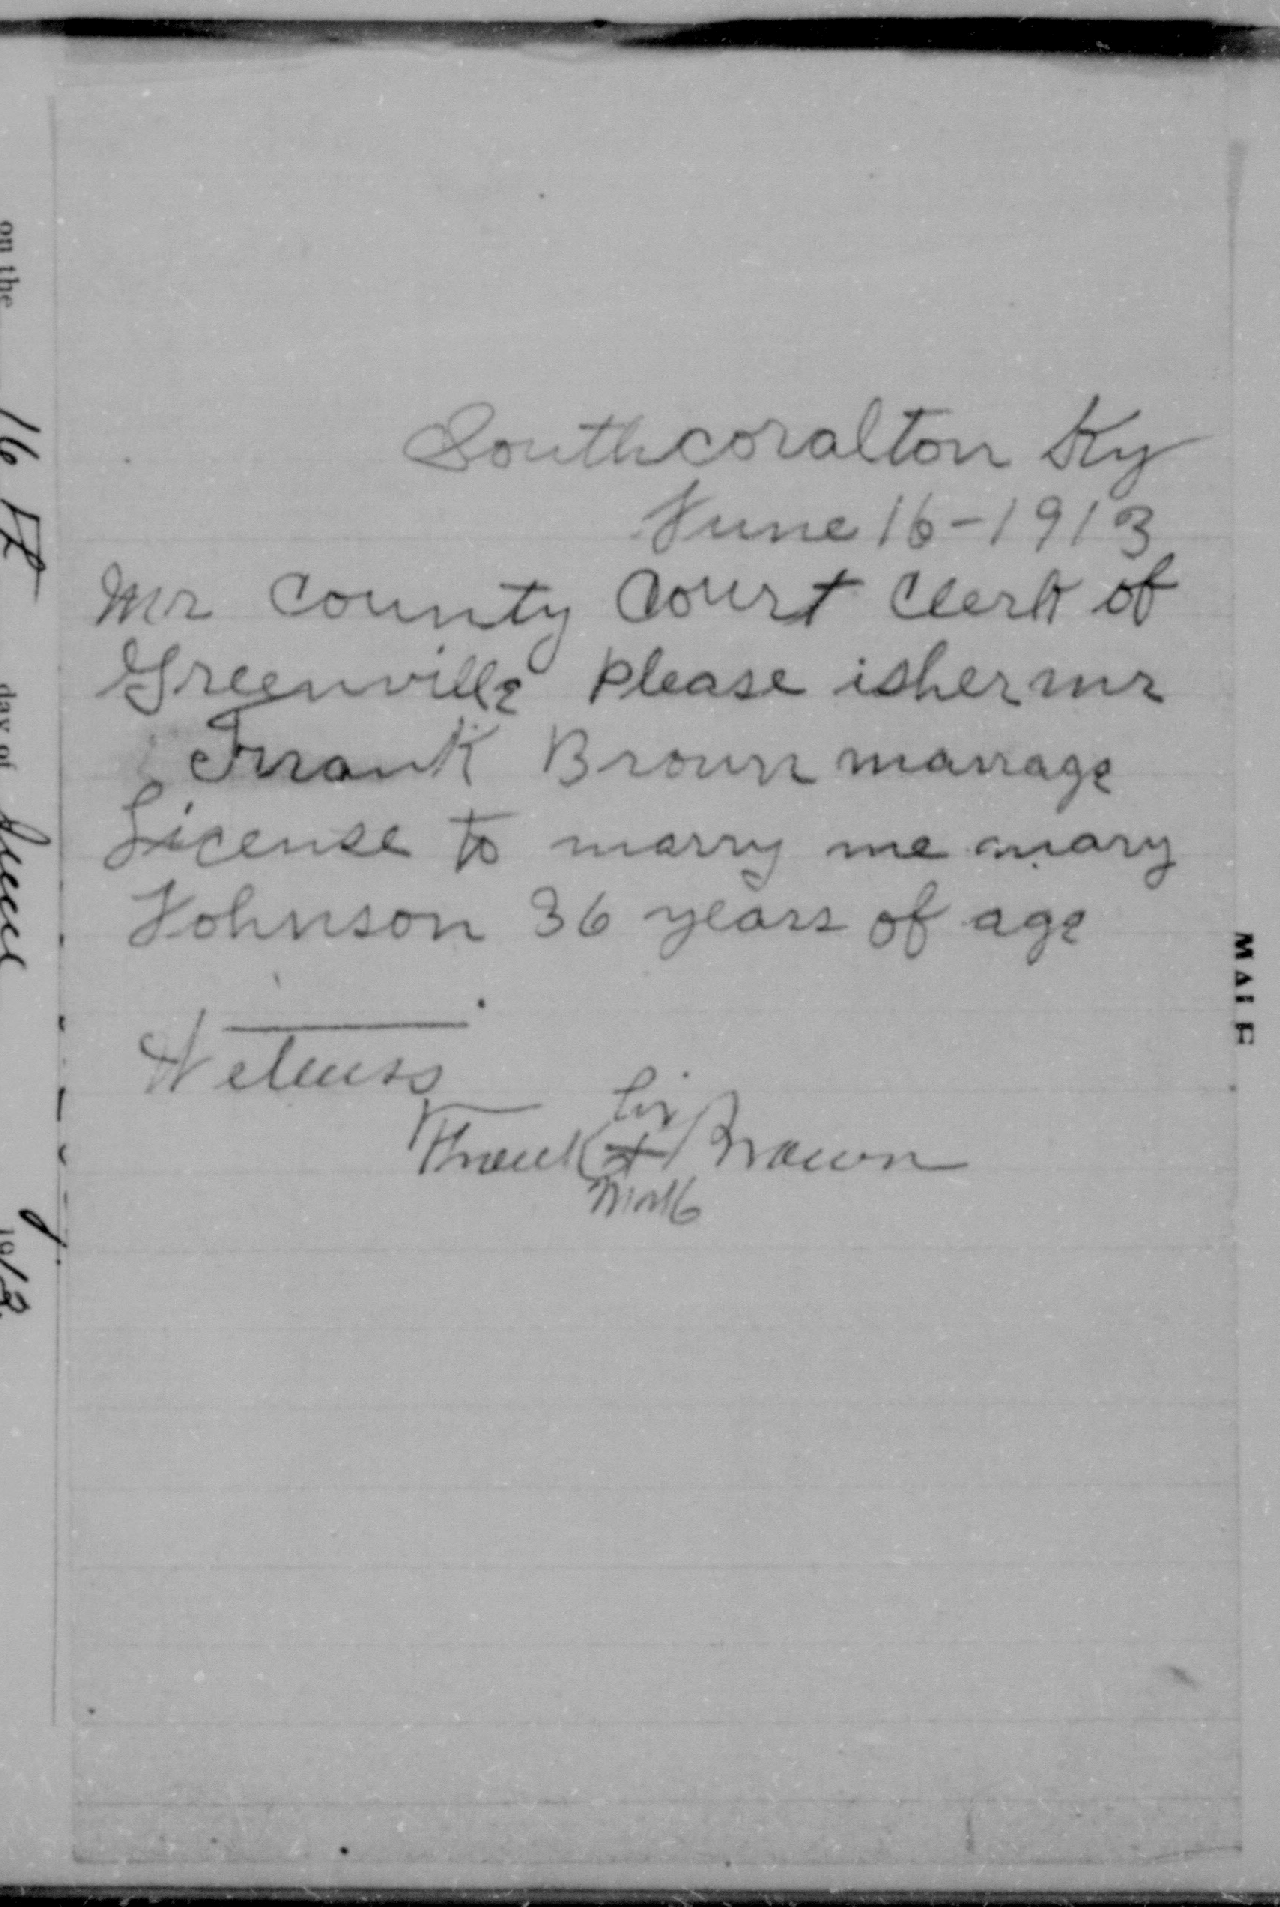 on the 16th day of June 1913
Southcoralton Ky
June 16-1913
Mr County Court Clerk of
Greenville Please isher mr
Frank Brown marrage
License to marry me mary
Johnson 36 years of age
Witness
his
Frank X Brown
Mark
MALE